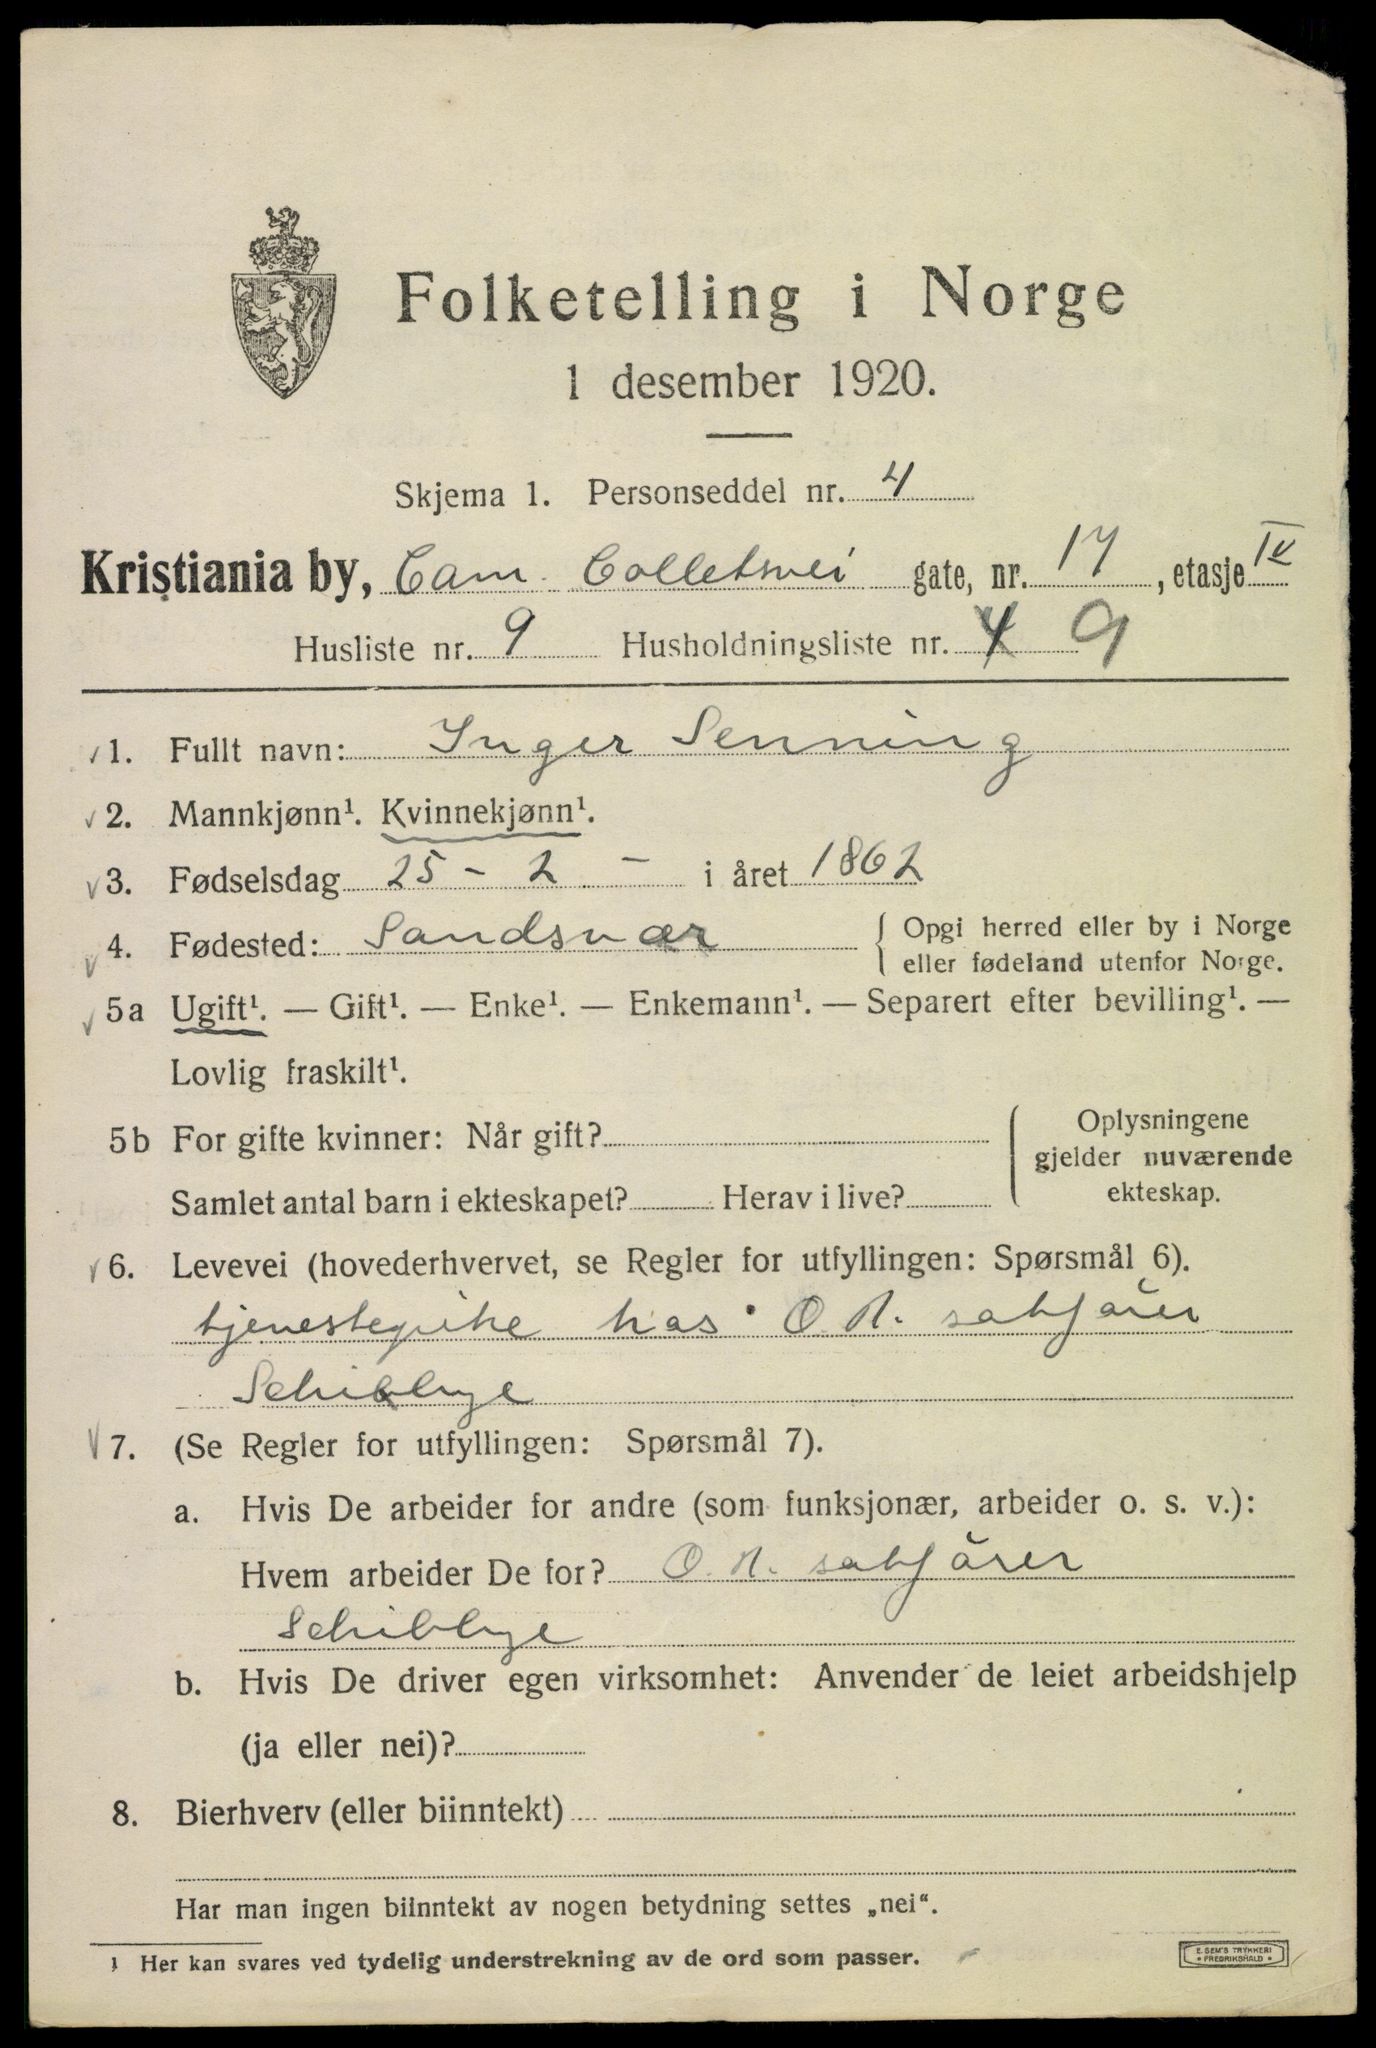 Folketelling i Norge
1 desember 1920.
Skjema 1. Personseddel nr. 4
Kristiania by, Cam. Colletsvei gate, nr. 17, etasje IV
Husliste nr. 9 Husholdningsliste nr. 4 9
1. Fullt navn: Inger Senning
2. Mannkjønn¹. Kvinnekjønn¹.
3. Fødselsdag 25 - 2 - i året 1862
4. Fødested: Sandsvær { Opgi herred eller by i Norge
eller fødeland utenfor Norge.
5a Ugift¹. — Gift¹. — Enke¹. — Enkemann¹. — Separert efter bevilling¹. —
Lovlig fraskilt¹.
5b For gifte kvinner: Når gift?
Samlet antal barn i ekteskapet? Herav i live?
Oplysningene
gjelder nuværende
ekteskap.
6. Levevei (hovederhvervet, se Regler for utfyllingen: Spørsmål 6).
tjenestepike hos O.R. sakfører
Schibbye
7. (Se Regler for utfyllingen: Spørsmål 7).
a. Hvis De arbeider for andre (som funksjonær, arbeider o. s. v.):
Hvem arbeider De for? O.R. sakfører
Schibbye
b. Hvis De driver egen virksomhet: Anvender de leiet arbeidshjelp
(ja eller nei)?
8. Bierhverv (eller biinntekt)
Har man ingen biinntekt av nogen betydning settes „nei“.
1 Her kan svares ved tydelig understrekning av de ord som passer.
E. SEM'S TRYKKERI
FREDRIKSHALD